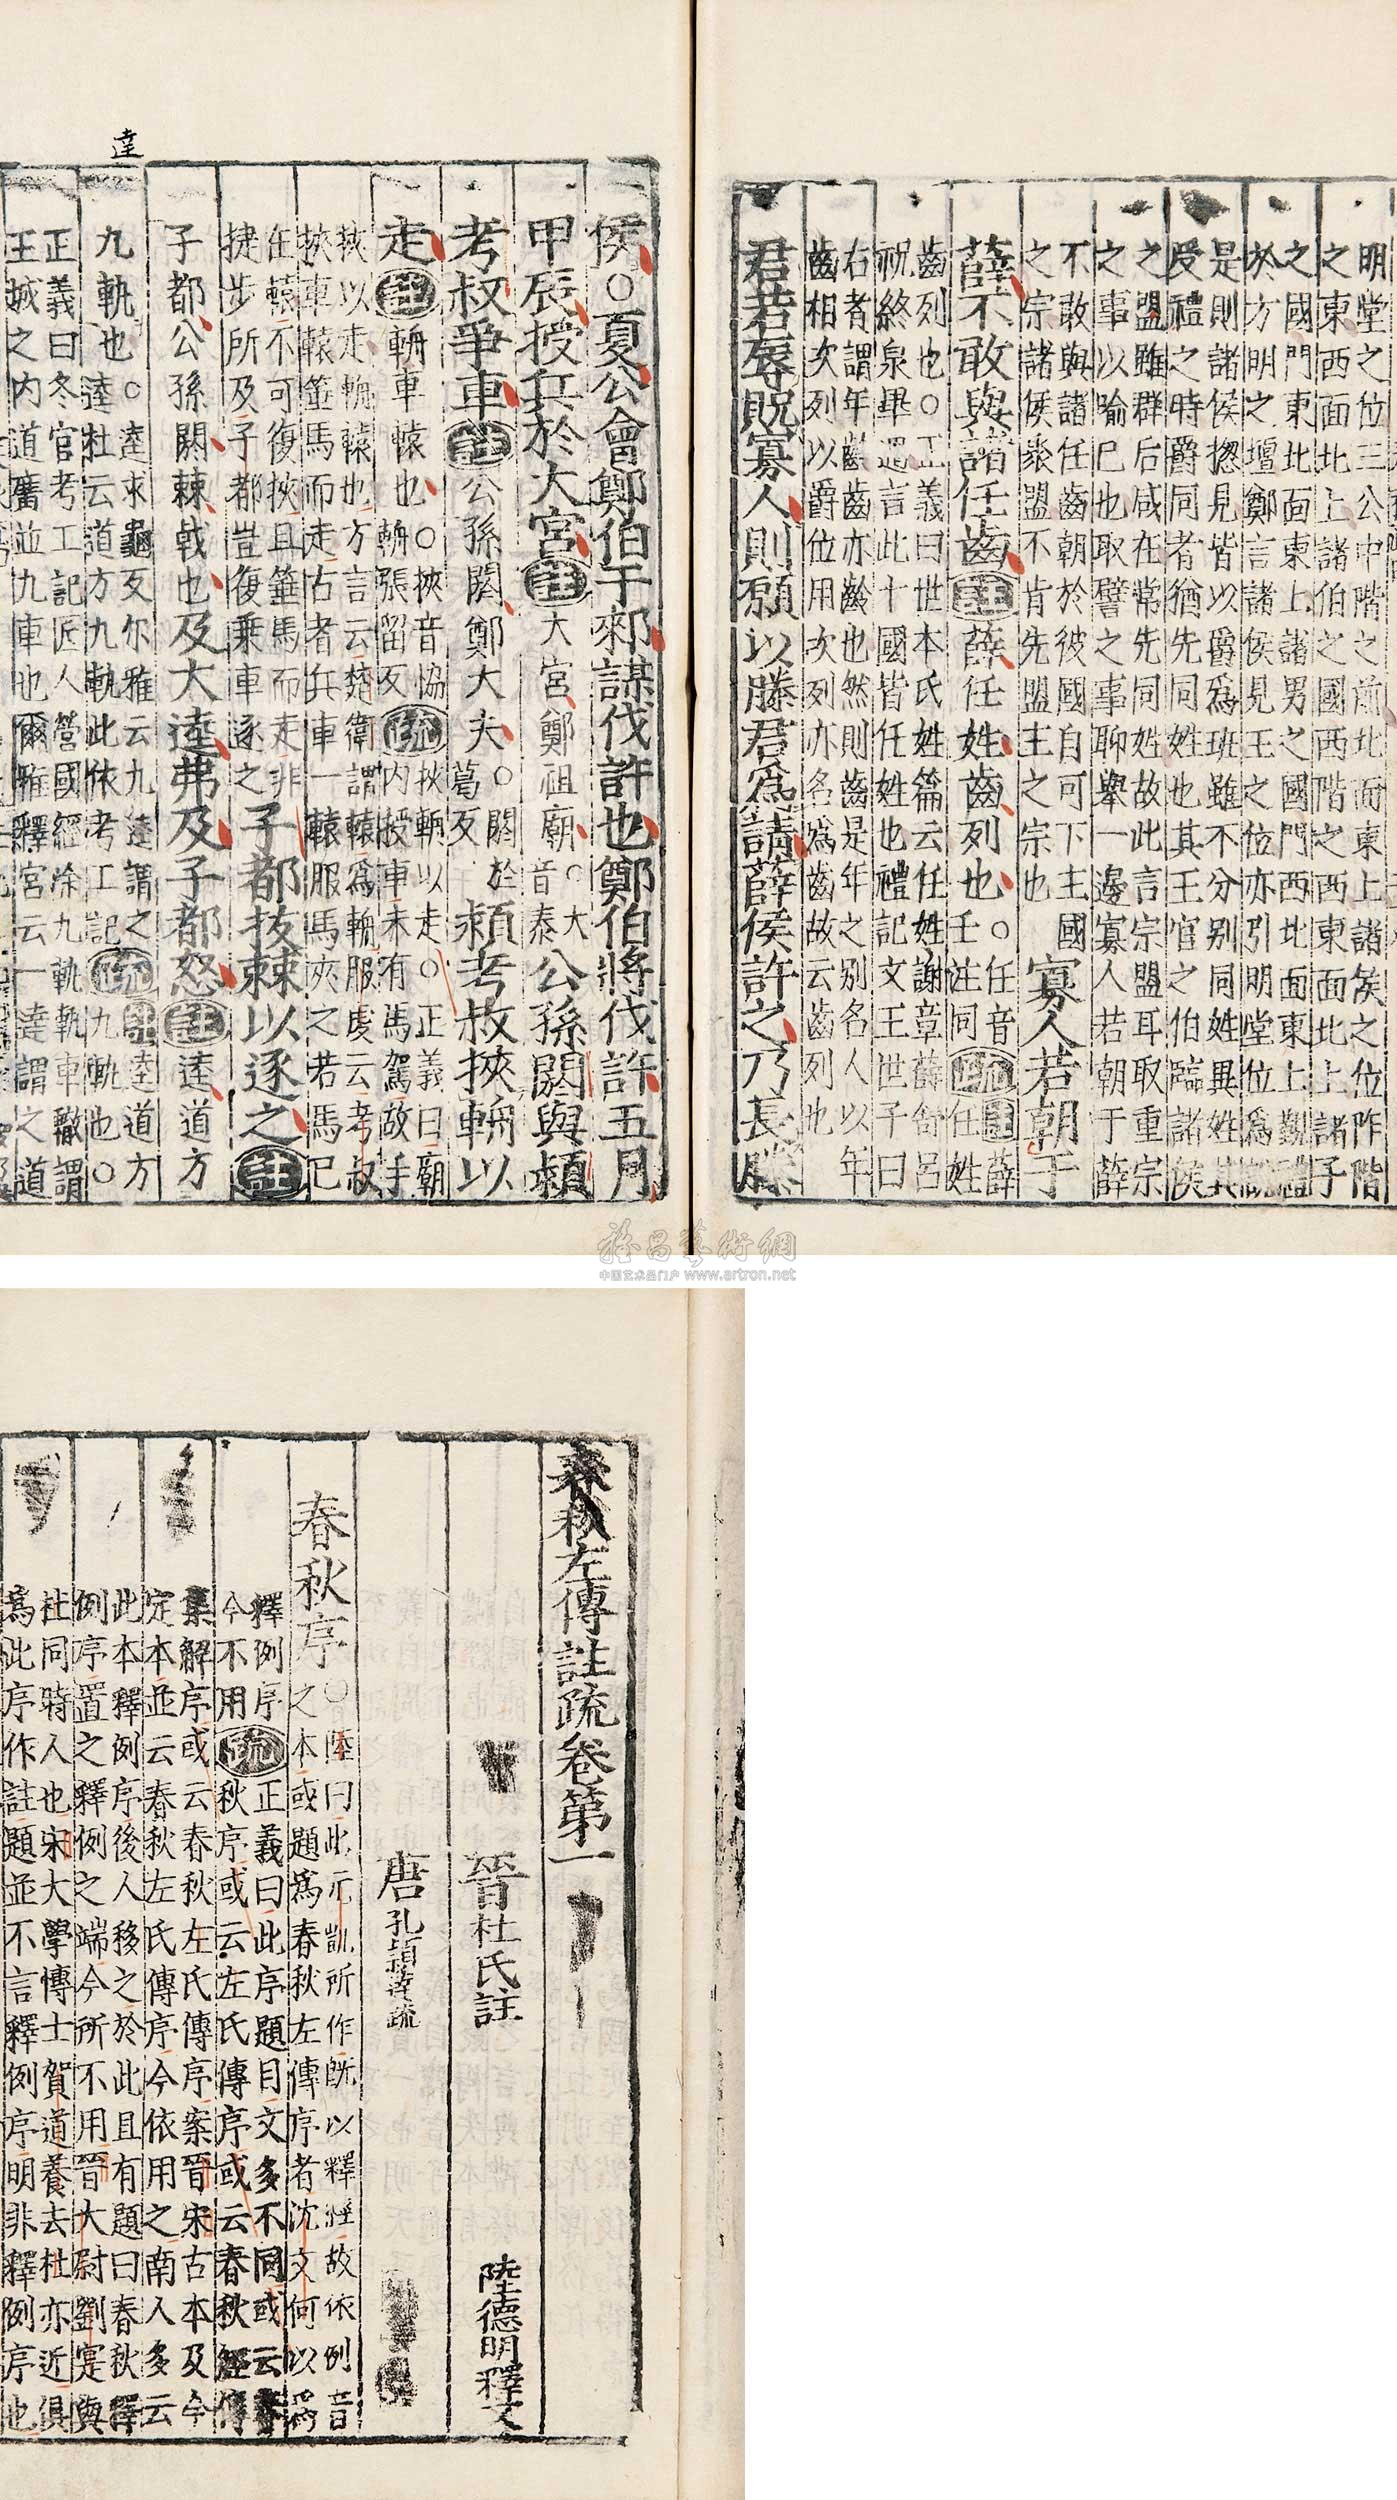 明堂之位三公中階之前北面東上諸侯之位阼階
之東西面北上諸伯之國西階之西東面北上諸子
之國門東北面東上諸男之國門西北面東上
於方明之壇鄭言諸侯見王之位亦引明堂位爲
是則諸侯揔見皆以爵爲班雖不分别同姓異姓其
受禮之時爵同者猶先同姓也其王官之伯臨諸侯
之盟雖群后咸在常先同姓故此言宗盟耳取重宗
之事以喻已也取譬之事聊舉一邊寡人若朝于薛
不敢與諸任齒朝於彼國自可下主國
之宗諸侯衆盟不肯先盟主之宗也
寡人若朝于
薛不敢與諸任齒註薛任姓齒列也○任音
壬註同疏註薛任姓
齒列也○正義曰世本氏姓篇云任姓謝章薛舒呂
祝終泉畢過言此十國皆任姓也禮記文王世子曰
右者謂年齡齒亦齡也然則齒是年之别名人以年
齒相次列以爵位用次列亦名爲齒故云齒列也
君若辱貺寡人則願以滕君爲請薛侯許之乃長滕
侯○夏公會鄭伯于郲謀伐許也鄭伯將伐許五月
甲辰授兵於大宮註大宮鄭祖廟○大音泰公孫閼與潁
考叔爭車註公孫閼鄭大夫○閼於葛反潁考叔挾輈以
走註輈車轅也○挾音協輈張留反疏挾輈以走○正義曰廟內授車未有馬駕故手
挾以走輈轅也方言云楚衛謂轅爲輈服虔云考叔
挾車轅箠馬而走古者兵車一轅服馬夾之若馬已
在轅不可復挾且箠馬而走非
捷步所及子都豈復乗車逐之
子都拔棘以逐之註
子都公孫閼棘戟也及大逵弗及子都怒註逵道方
九軌也○逵求龜反尔雅云九逵謂之
逵杜云道方九軌此依考工記疏註逵道方九軌也○
正義曰冬官考工記匠人營國經涂九軌軌車轍謂
王城之内道廣並九車也爾雅釋宫云一達謂之道
逹
春秋左傳註疏卷第一
晉杜氏註
陸德明釋文
唐孔穎達疏
春秋序○陸曰此元凱所作旣以釋經故依例音
之本或題爲春秋左傳序者沈文何以爲
釋例序
今不用疏正義曰此序題目文多不同或云春
秋序或云左氏傳序或云春秋經傳
集解序或云春秋左氏傳序案晉宋古本及今
定本並云春秋左氏傳序今依用之南人多云
此本釋例序後人移之於此且有題曰春秋釋
例序置之釋例之端今所不用晉大尉劉寔與
杜同時人也宋大學博士賀道養去杜亦近俱
爲此序作註題並不言釋例序明非釋例序也
雅昌藝術網
中国艺术品门户 www.artron.net